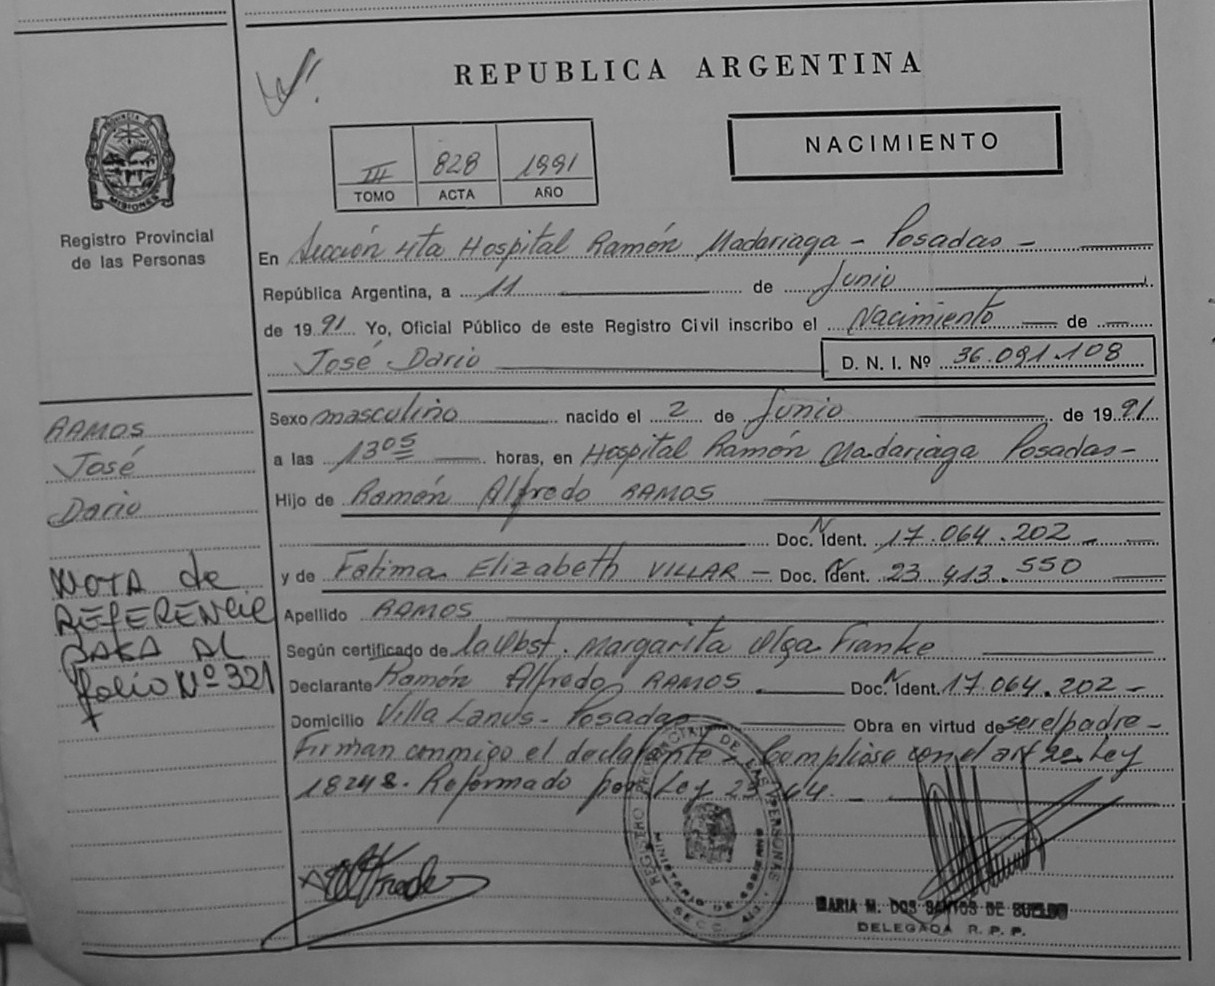 REPUBLICA ARGENTINA
NACIMIENTO
III 828 1991
TOMO ACTA AÑO
MISIONES
Registro Provincial
de las Personas
En Sección 4ta Hospital Ramón Madariaga - Posadas -
República Argentina, a 11 de Junio
de 1991 Yo, Oficial Público de este Registro Civil inscribo el Nacimiento de
José Dario D. N. I. Nº 36.091.108
Sexo masculino nacido el 2 de Junio de 1991
a las 13 05 horas, en Hospital Ramón Madariaga Posadas-
Hijo de Ramón Alfredo RAMOS
Doc. N Ident. 17.064.202 -
y de Fatima Elizabeth VILLAR - Doc. N Ident. 23 413.550
Apellido RAMOS
Según certificado de la Obst. Margarita Olga Franke
Declarante Ramón Alfredo RAMOS Doc. N Ident. 17.064.202 -
Domicilio Villa Lanus - Posadas Obra en virtud de ser el padre -
Firman conmigo el declarante Cumpliose con el art Ley
18248. Reformado por Ley
RAMOS
José
Dario
NOTA de
REFERENCIA
PASA AL
folio Nº 321
REGISTRO PROVINCIAL DE LAS PERSONAS
MINISTERIO DE GOBIERNO
MARIA M. DOS SANTOS DE
DELEGADA R. P. P.